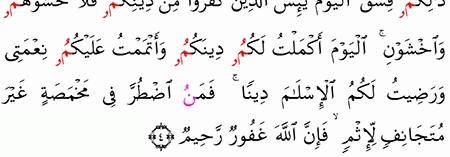 ذَٰلِكُمُۥ فِسْقٌ ٱلْيَوْمَ يَئِسَ ٱلَّذِينَ كَفَرُوا۟ مِن دِينِكُمُۥ فَلَا تَخْشَوْهُمُۥ
وَٱخْشَوْنِ ۚ ٱلْيَوْمَ أَكْمَلْتُ لَكُمُۥ دِينَكُمُۥ وَأَتْمَمْتُ عَلَيْكُمُۥ نِعْمَتِى
وَرَضِيتُ لَكُمُ ٱلْإِسْلَٰمَ دِينًا ۚ فَمَنُ ٱضْطُرَّ فِى مَخْمَصَةٍ غَيْرَ
مُتَجَانِفٍ لِّإِثْمٍ ۙ فَإِنَّ ٱللَّهَ غَفُورٌ رَّحِيمٌ ﴿٤﴾